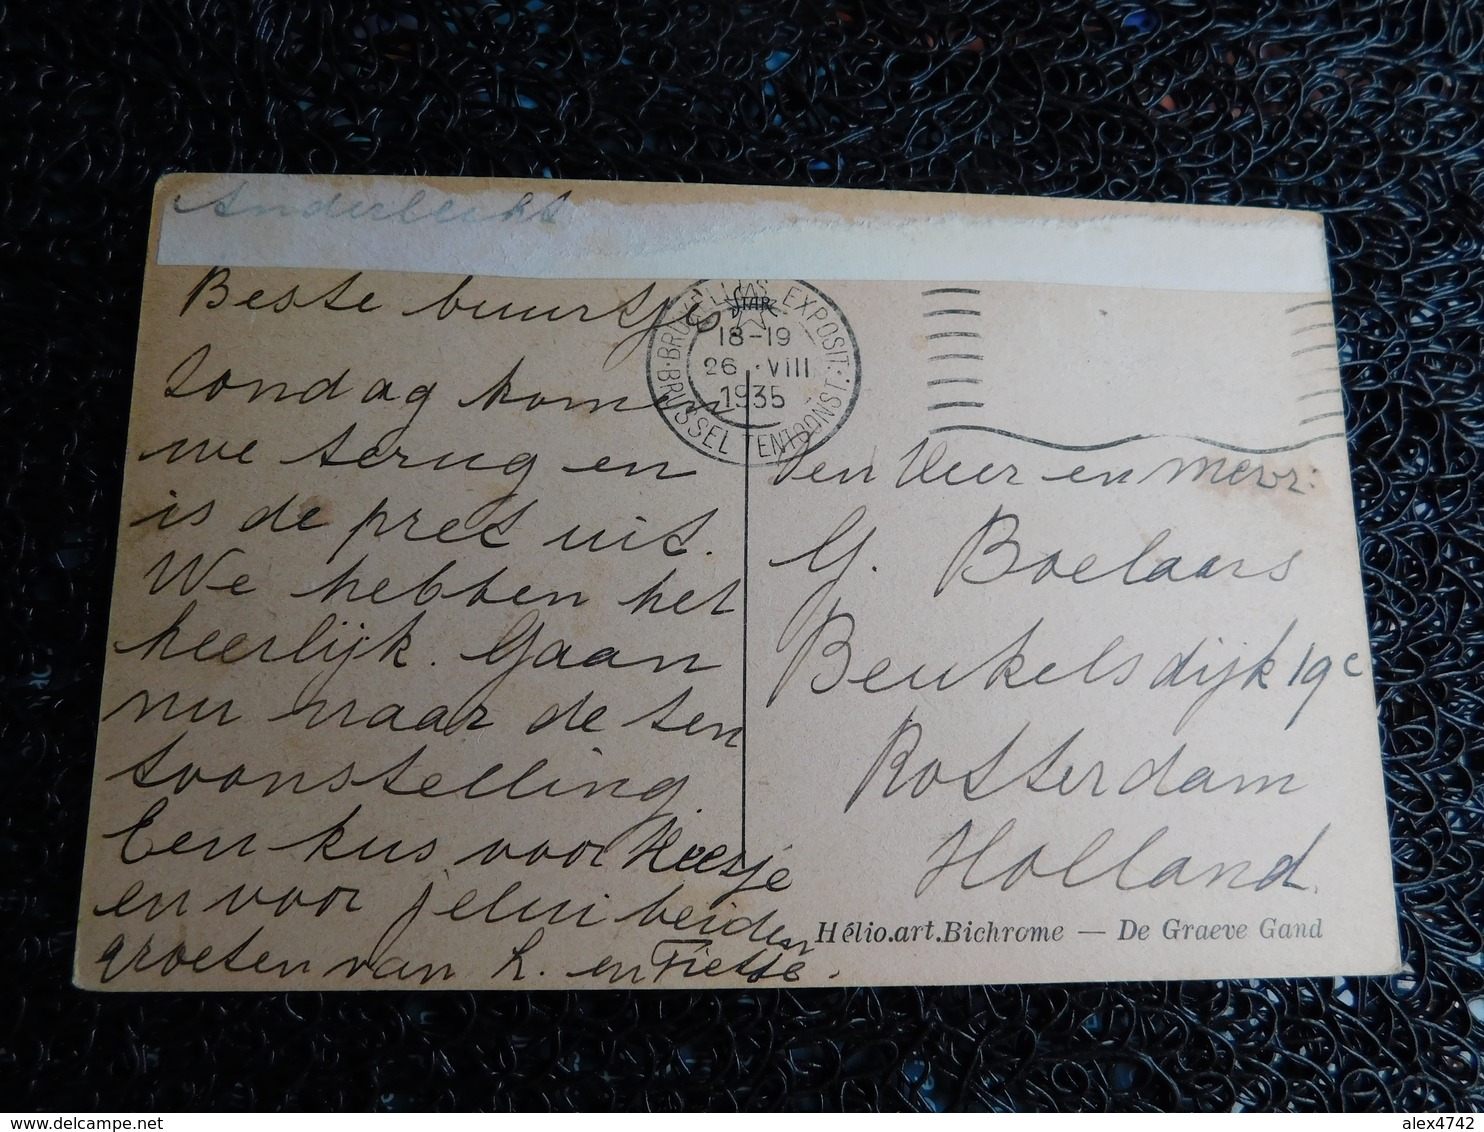 Anderlecht
Beste buurtjes
Zondag komen
we terug en
is de pret uit.
We hebben het
heerlijk. Gaan
nu naar de ten
toonstelling.
Een kus voor Keesje
en voor jelui beiden
groeten van L. en Fietse.
BRUXELLES EXPOSIT.
BRUSSEL TENTOONST.
18-19
26 · VIII
1935
Den Heer en Mevr:
G. Boelaars
Beukelsdijk 19c
Rotterdam
Holland.
Hélio.art.Bichrome — De Graeve Gand
alex4742